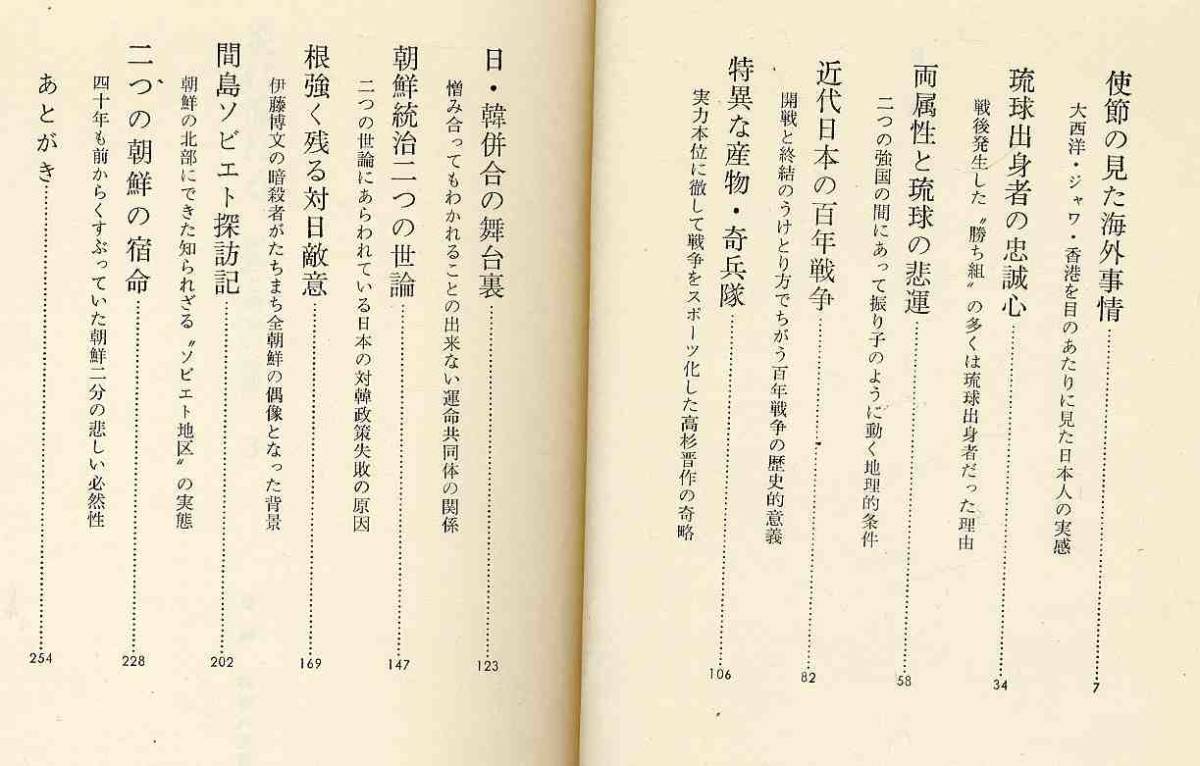 使節の見た海外事情……7
大西洋・ジャワ・香港を目のあたりに見た日本人の実感
琉球出身者の忠誠心……34
戦後発生した〝勝ち組〟の多くは琉球出身者だった理由
両属性と琉球の悲運……58
二つの強国の間にあって振り子のように動く地理的条件
近代日本の百年戦争……82
開戦と終結のうけとり方でちがう百年戦争の歴史的意義
特異な産物・奇兵隊……106
実力本位に徹して戦争をスポーツ化した高杉晋作の奇略
日・韓併合の舞台裏……123
憎み合ってもわかれることの出来ない運命共同体の関係
朝鮮統治二つの世論……147
二つの世論にあらわれている日本の対韓政策失敗の原因
根強く残る対日敵意……169
伊藤博文の暗殺者がたちまち全朝鮮の偶像となった背景
間島ソビエト探訪記……202
朝鮮の北部にできた知られざる〝ソビエト地区〟の実態
二つの朝鮮の宿命……228
四十年も前からくすぶっていた朝鮮二分の悲しい必然性
あとがき……254